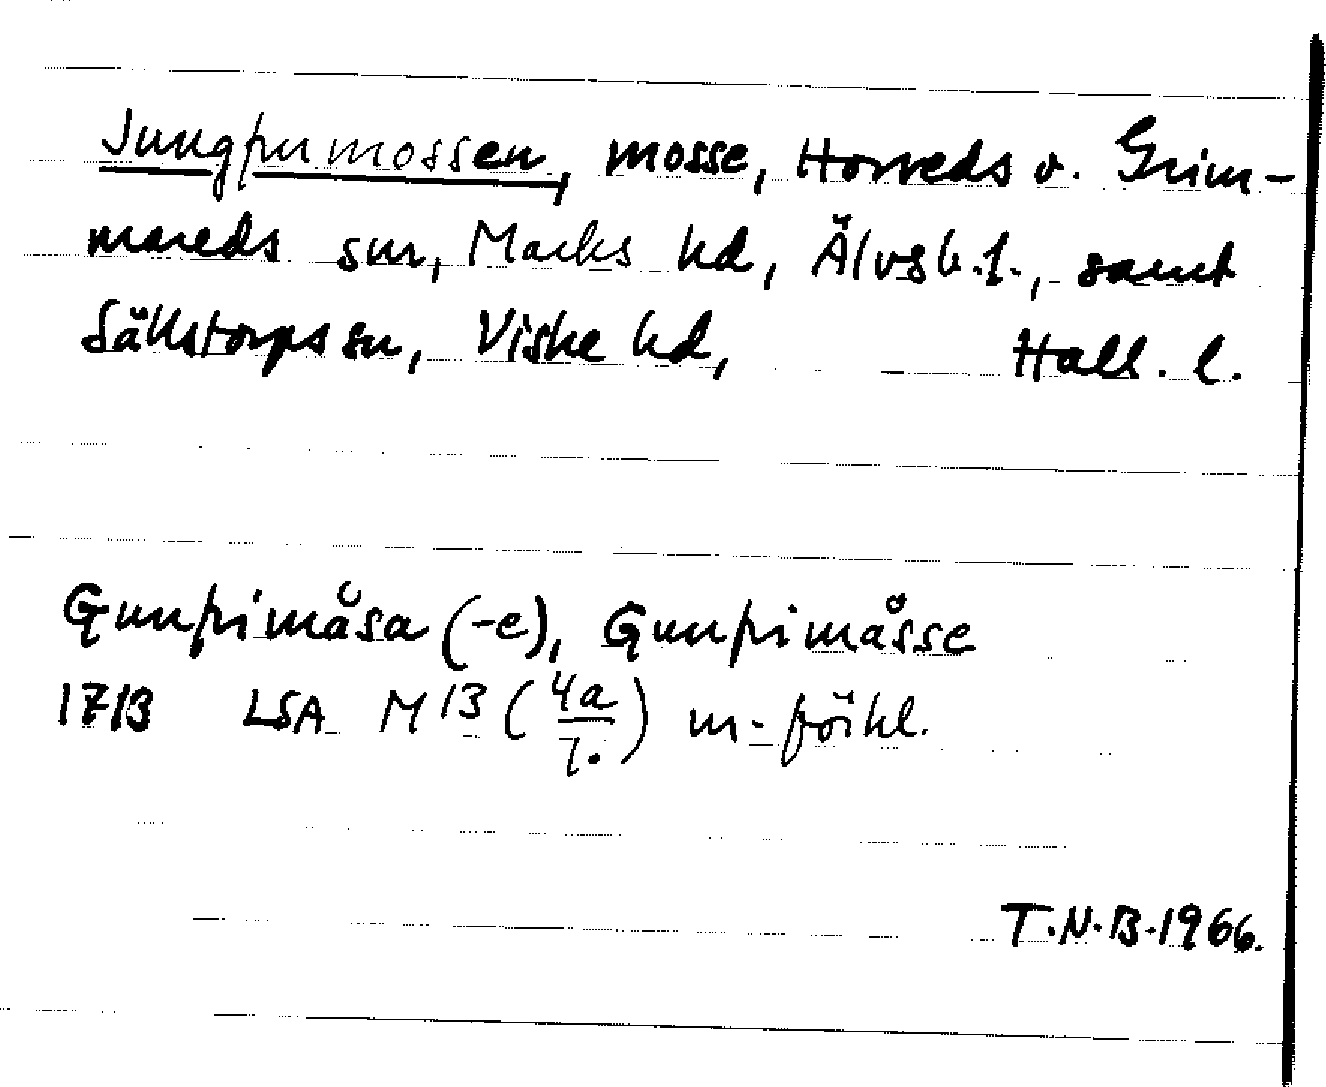 Jungfrumossen, mosse, Horreds o. Grim-
mareds snr, Marks hd, Älvsb. l., samt
Sällstorps sn, Viske hd, Hall. l.
Gunfrimåsa (-e), Gunfrimåsse
1713 LSA M 13 (4a/7.) m. förkl.
T.N.B. 1966.